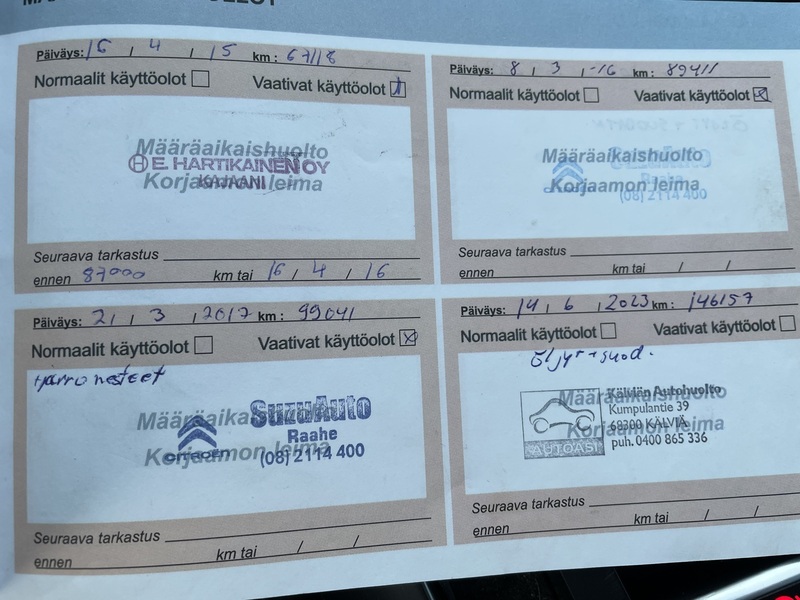 Päiväys: 16 , 4 , 15 km : 67118
Normaalit käyttöolot Vaativat käyttöolot
Määräaikaishuolto
E. HARTIKAINEN OY
KAJAANI
Korjaamon leima
Seuraava tarkastus
ennen 87000 km tai 16 / 4 / 16
Päiväys: 8 , 3 , -16 km : 89411
Normaalit käyttöolot Vaativat käyttöolot
Määräaikaishuolto
SuzuAuto
Raahe
Korjaamon leima
(08) 2114 400
Seuraava tarkastus
ennen km tai / /
Päiväys: 21 , 3 , 2017 km : 99041
Normaalit käyttöolot Vaativat käyttöolot
Jarrunesteet
Määräaikaishuolto
SuzuAuto
Raahe
CITROËN
Korjaamon leima
(08) 2114 400
Seuraava tarkastus
ennen km tai / /
Päiväys: 14 , 6 , 2023 km : 146157
Normaalit käyttöolot Vaativat käyttöolot
Öljyt + suod.
Määräaikaishuolto
Kälviän Autohuolto
Kumpulantie 39
68300 KÄLVIÄ
Korjaamon leima
puh. 0400 865 336
AUTOASI
Seuraava tarkastus
ennen km tai / /